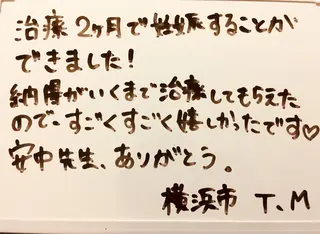 治療2ヶ月で妊娠することが
できました!
納得がいくまで治療してもらえた
ので、すごくすごく嬉しかったです♡
安中先生、ありがとう。
横浜市 T.M